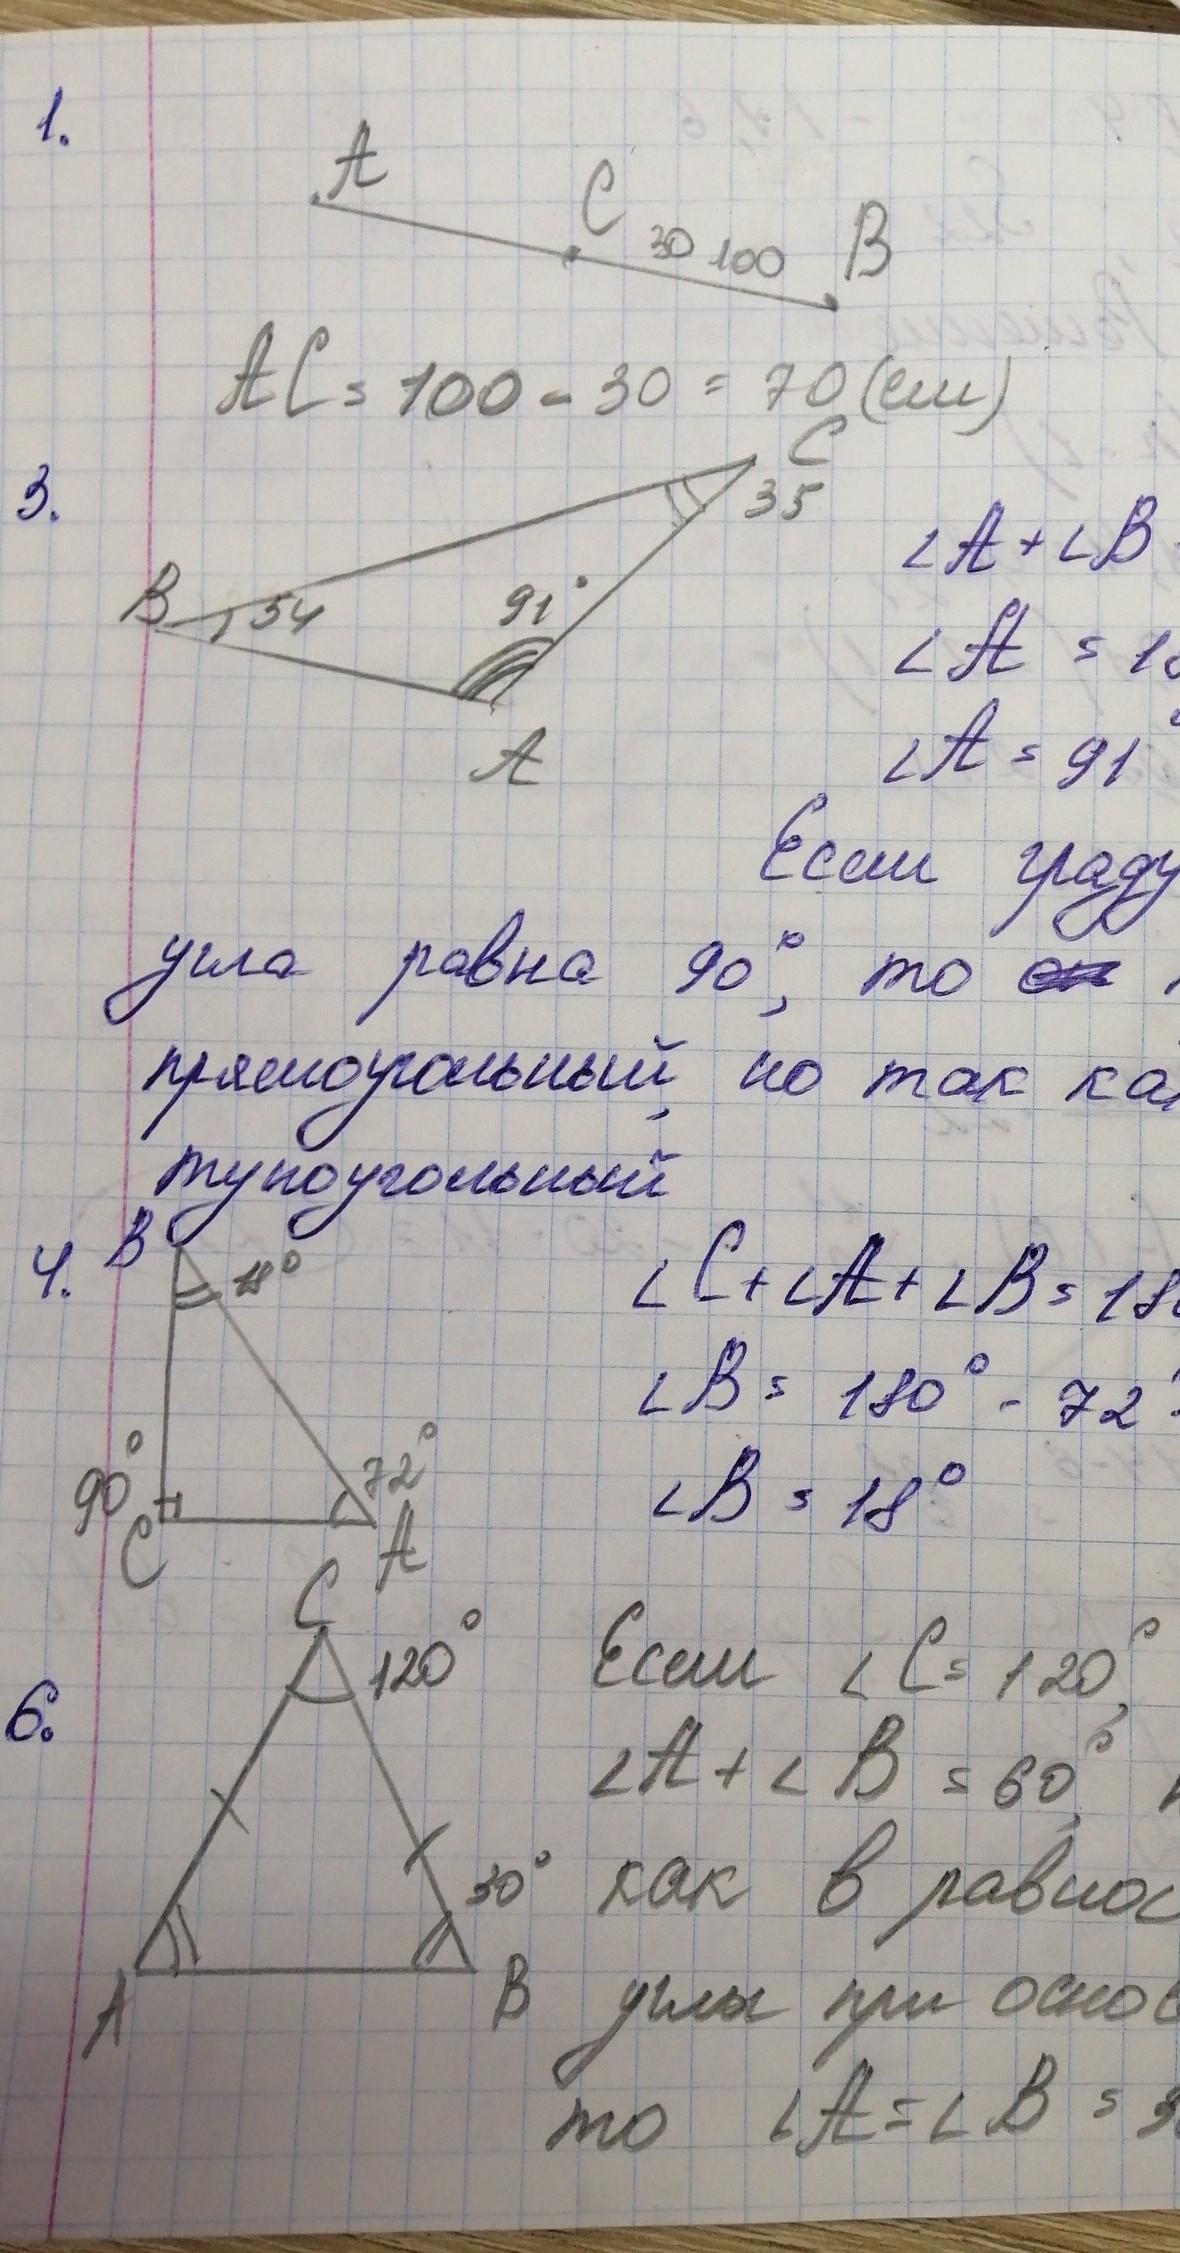 1.
A
C
30 100 B
AC = 100 - 30 = 70 (см)
3.
C
35
B 54
91°
A
∠A + ∠B
∠A = 18
∠A = 91°
Если граду
угла равна 90°, то
прямоугольный, но так ка
тупоугольный
4.
B
18°
90°
72°
C
A
∠C + ∠A + ∠B = 180
∠B = 180° - 72°
∠B = 18°
6.
C
120°
30°
A
B
Если ∠C = 120°,
∠A + ∠B = 60°,
как в равнос
углы при основ
то ∠A = ∠B = 30